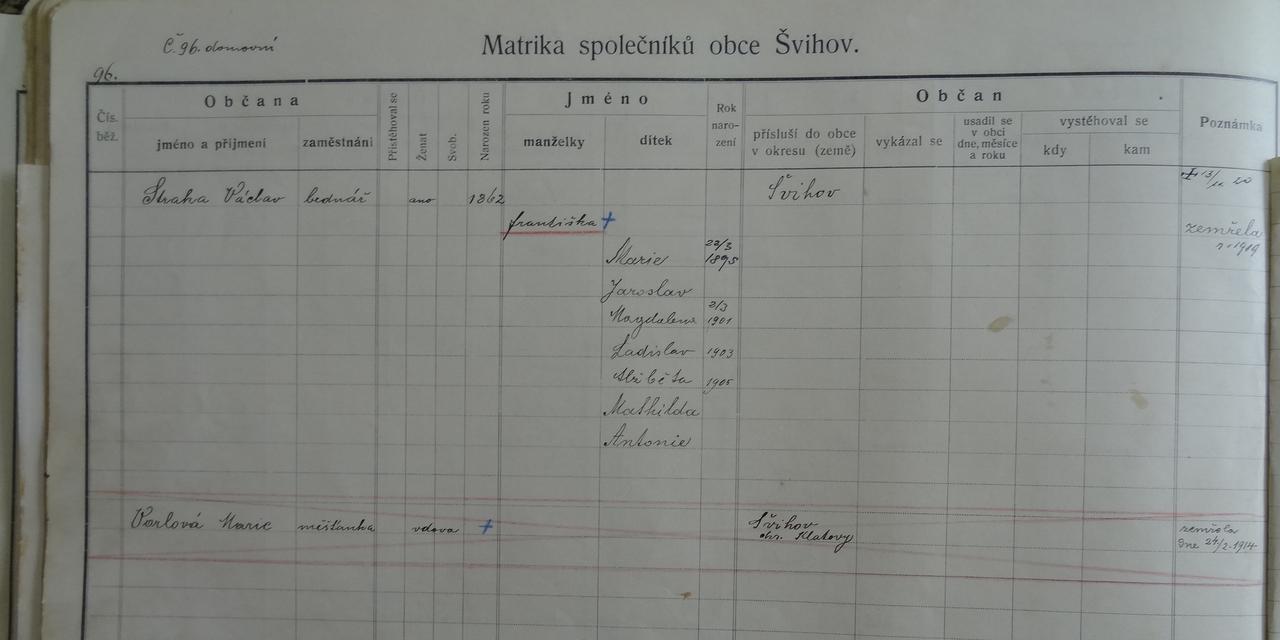 Č. 96. domovní
Matrika společníků obce Švihov.
96.
Čís. běž.
Občana
jméno a příjmení
zaměstnání
Přistěhoval se
Ženat
Svob.
Narozen roku
Jméno
manželky
dítek
Rok naro- zení
Občan
přísluší do obce v okresu (země)
vykázal se
usadil se v obci dne, měsíce a roku
vystěhoval se
kdy
kam
Poznámka
Straka Václav bednář ano 1862 Švihov
františka + zemřela r. 1909
Marie 22/3 1895
Jaroslav
Magdalena 2/3 1901
Ladislav 1903
Alžběta 1905
Mathilda
Antonie
Vorlová Marie měšťanka vdova + Švihov okr. Klatovy zemřela dne 24/2 1914